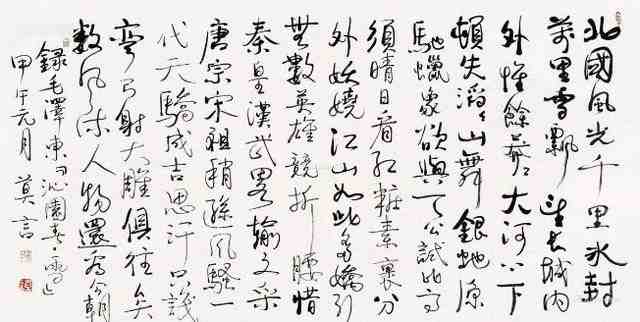 北國風光千里冰封
萬里雪飄望長城内
外惟餘莽〻大河上下
頓失滔〻山舞銀蛇原
馳蠟象欲與天公試比高
須晴日看紅粧素裹分
外妖嬈江山如此多嬌引
無數英雄競折腰惜
秦皇漢武畧輸文采
唐宗宋祖稍遜風騷一
代天驕成吉思汗只識
彎弓射大雕俱往矣
數風流人物還看今朝
錄毛澤東詞沁園春雪
甲午元月 莫言